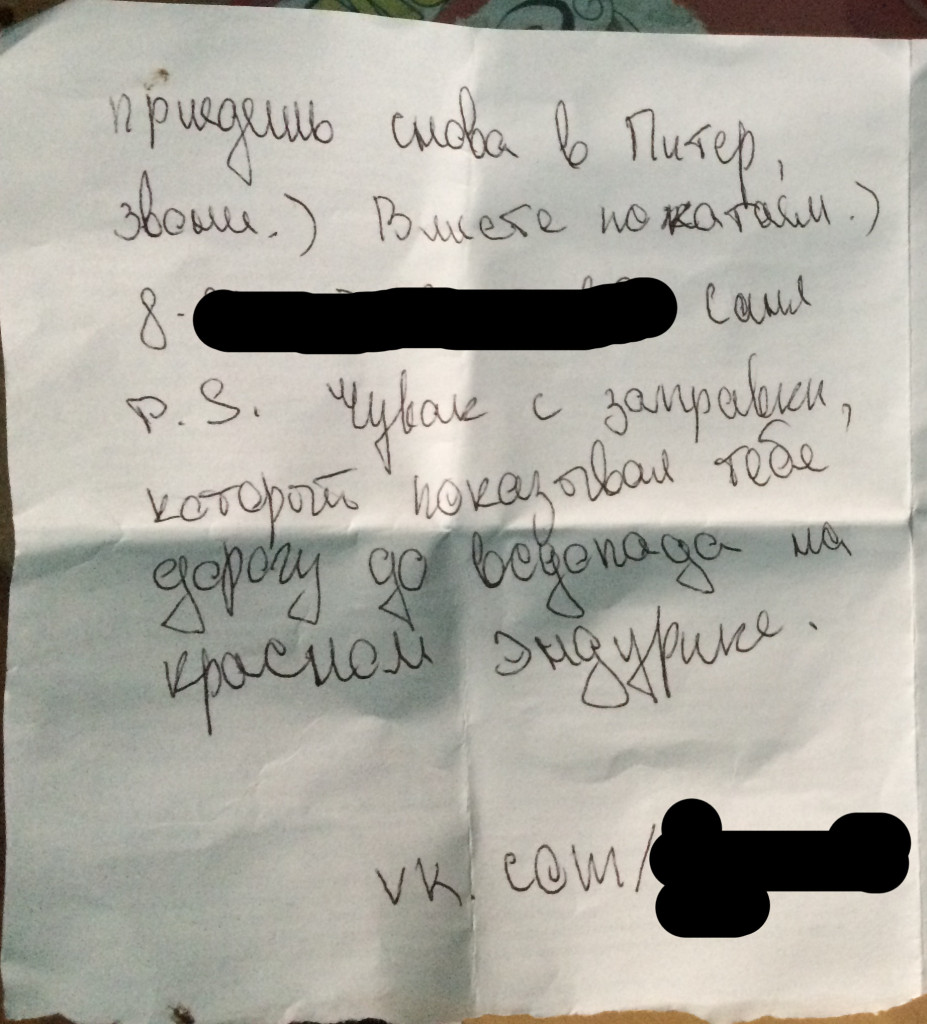 приедешь снова в Питер,
звони.) Вместе покатаем.)
8- Саня
P.S. Чувак с заправки,
который показывал тебе
дорогу до водопада на
красном эндурике.
vk.com/